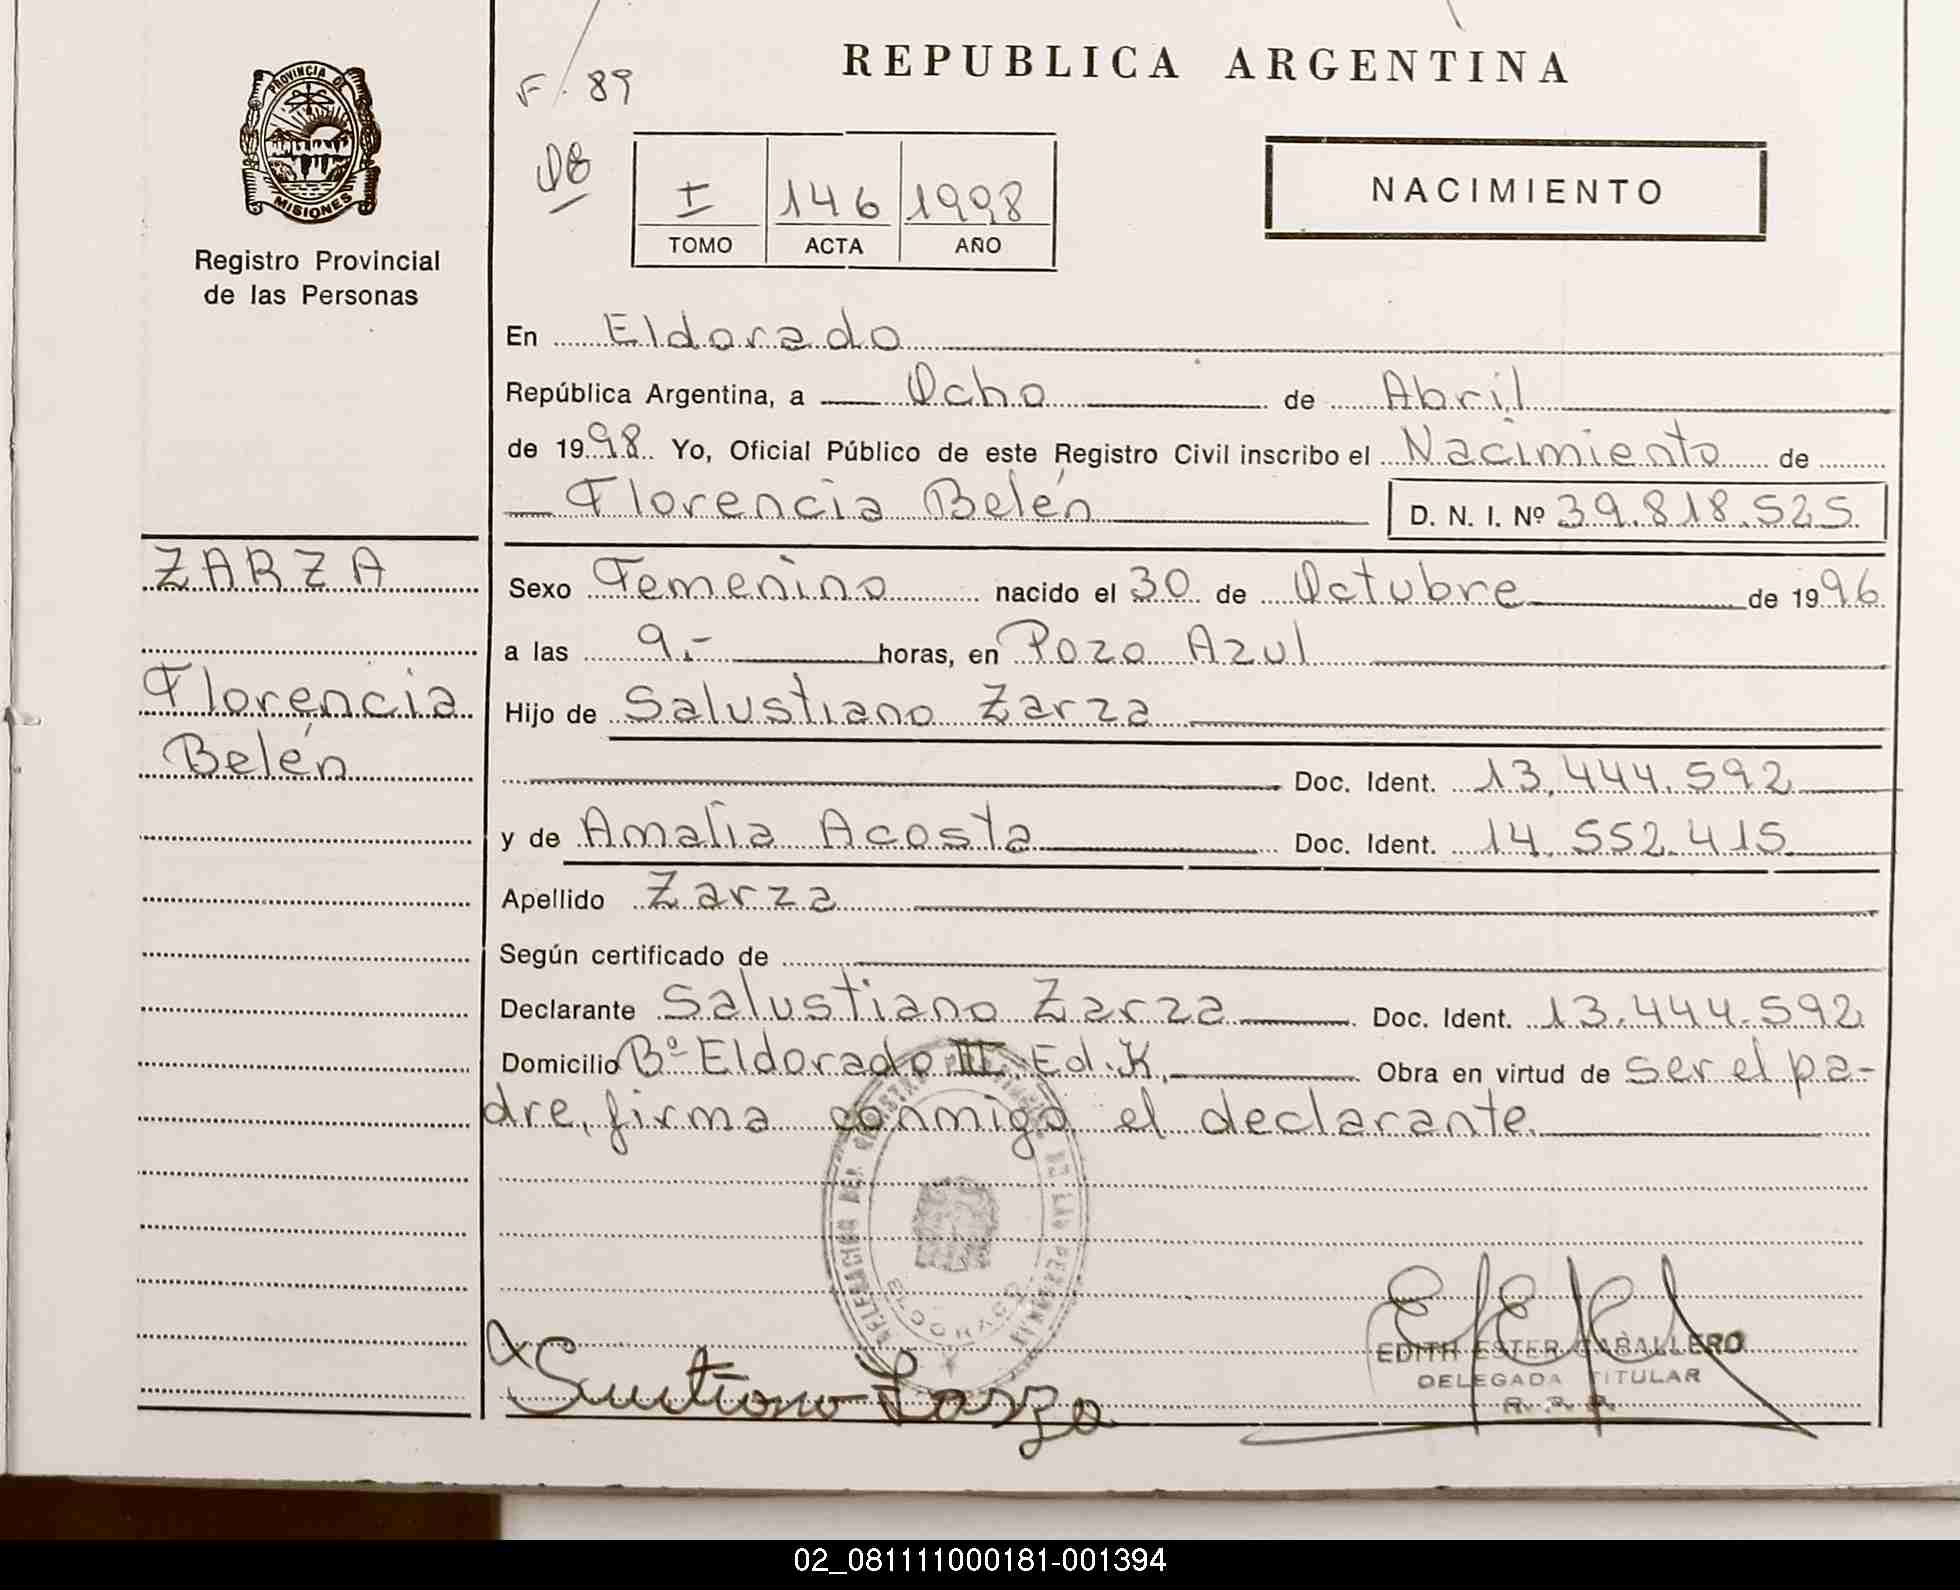 REPUBLICA ARGENTINA
PROVINCIA DE
MISIONES
Registro Provincial
de las Personas
F. 89
I 146 1998
TOMO ACTA AÑO
NACIMIENTO
En Eldorado
República Argentina, a Ocho de Abril
de 1998. Yo, Oficial Público de este Registro Civil inscribo el Nacimiento de
Florencia Belén D. N. I. Nº 39.818.525
ZARZA
Florencia
Belén
Sexo Femenino nacido el 30 de Octubre de 1996
a las 9.- horas, en Pozo Azul
Hijo de Salustiano Zarza
Doc. Ident. 13.444.592
y de Amalia Acosta Doc. Ident. 14.552.415
Apellido Zarza
Según certificado de
Declarante Salustiano Zarza Doc. Ident. 13.444.592
Domicilio Bº Eldorado III Ed. K. Obra en virtud de ser el pa-
dre, firma conmigo el declarante.
DELEGACION DEL REGISTRO PROVINCIAL DE LAS PERSONAS
ELDORADO
EDITH ESTER CABALLERO
DELEGADA TITULAR
R. P. P.
02_081111000181-001394